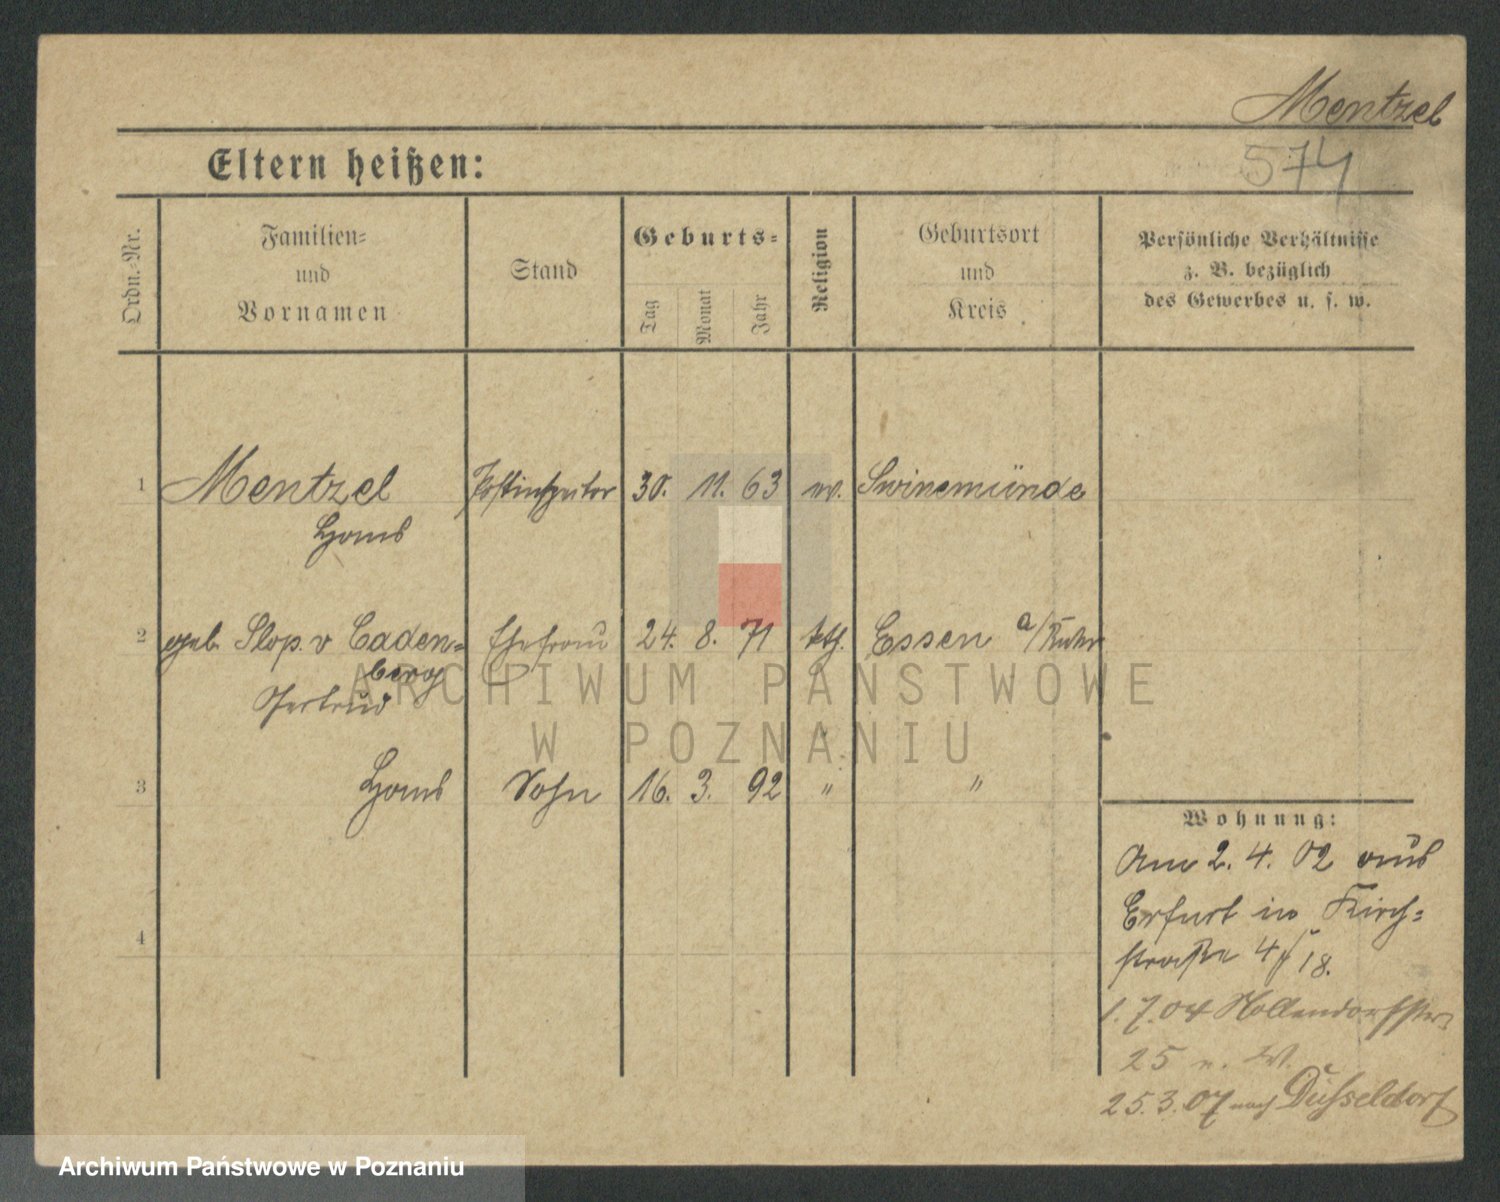 Mentzel
574
Eltern heißen:
Ordn.-Nr.
Familien-
und
Vornamen
Stand
Geburts-
Tag
Monat
Jahr
Religion
Geburtsort
und
Kreis
Persönliche Verhältnisse
z. B. bezüglich
des Gewerbes u. s. w.
1 Mentzel Postinspektor 30. 11. 63 ev. Swinemünde
Hans
2 geb. Slop. v Caden- Ehefrau 24. 8. 71 kth. Essen a/Ruhr
berg
Gertrud
3 Hans Sohn 16. 3. 92 " "
4
Wohnung:
Am 2. 4. 02 aus
Erfurt in Kirch-
straße 4/ 18.
1. 7. 04 Nollendorfstr.
25
25. 3. 07 nach Düsseldorf
ARCHIWUM PAŃSTWOWE
W POZNANIU
Archiwum Państwowe w Poznaniu